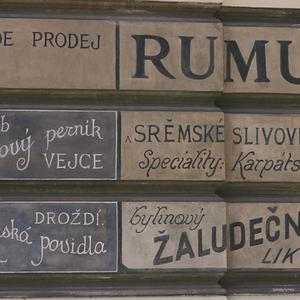 DE PRODEJ
RUMU
b
ový perník
VEJCE
A SRĚMSKÉ SLIVOVI
Speciality: Karpats
DROŽDÍ.
ská povidla
bylinový
ŽALUDEČN
LIK